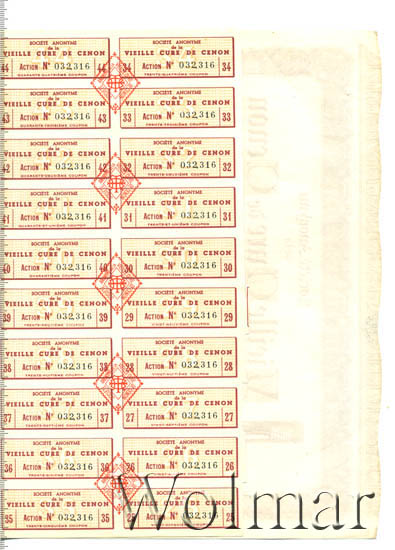 SOCIÉTÉ ANONYME
de la
VIEILLE CURE DE CENON
44 ACTION N° 032,316 44
QUARANTE-QUATRIÈME COUPON
SOCIÉTÉ ANONYME
de la
VIEILLE CURE DE CENON
34 ACTION N° 032,316 34
TRENTE-QUATRIÈME COUPON
SOCIÉTÉ ANONYME
de la
VIEILLE CURE DE CENON
43 ACTION N° 032,316 43
QUARANTE-TROISIÈME COUPON
SOCIÉTÉ ANONYME
de la
VIEILLE CURE DE CENON
33 ACTION N° 032,316 33
TRENTE-TROISIÈME COUPON
SOCIÉTÉ ANONYME
de la
VIEILLE CURE DE CENON
42 ACTION N° 032,316 42
QUARANTE-DEUXIÈME COUPON
SOCIÉTÉ ANONYME
de la
VIEILLE CURE DE CENON
32 ACTION N° 032,316 32
TRENTE-DEUXIÈME COUPON
SOCIÉTÉ ANONYME
de la
VIEILLE CURE DE CENON
41 ACTION N° 032,316 41
QUARANTE-ET-UNIÈME COUPON
SOCIÉTÉ ANONYME
de la
VIEILLE CURE DE CENON
31 ACTION N° 032,316 31
TRENTE-ET-UNIÈME COUPON
SOCIÉTÉ ANONYME
de la
VIEILLE CURE DE CENON
40 ACTION N° 032,316 40
QUARANTIÈME COUPON
SOCIÉTÉ ANONYME
de la
VIEILLE CURE DE CENON
30 ACTION N° 032,316 30
TRENTIÈME COUPON
SOCIÉTÉ ANONYME
de la
VIEILLE CURE DE CENON
39 ACTION N° 032,316 39
TRENTE-NEUVIÈME COUPON
SOCIÉTÉ ANONYME
de la
VIEILLE CURE DE CENON
29 ACTION N° 032,316 29
VINGT-NEUVIÈME COUPON
SOCIÉTÉ ANONYME
de la
VIEILLE CURE DE CENON
38 ACTION N° 032,316 38
TRENTE-HUITIÈME COUPON
SOCIÉTÉ ANONYME
de la
VIEILLE CURE DE CENON
28 ACTION N° 032,316 28
VINGT-HUITIÈME COUPON
SOCIÉTÉ ANONYME
de la
VIEILLE CURE DE CENON
37 ACTION N° 032,316 37
TRENTE-SEPTIÈME COUPON
SOCIÉTÉ ANONYME
de la
VIEILLE CURE DE CENON
27 ACTION N° 032,316 27
VINGT-SEPTIÈME COUPON
SOCIÉTÉ ANONYME
de la
VIEILLE CURE DE CENON
36 ACTION N° 032,316 36
TRENTE-SIXIÈME COUPON
SOCIÉTÉ ANONYME
de la
VIEILLE CURE DE CENON
26 ACTION N° 032,316 26
SOCIÉTÉ ANONYME
de la
VIEILLE CURE DE CENON
35 ACTION N° 032,316 35
TRENTE-CINQUIÈME COUPON
SOCIÉTÉ ANONYME
de la
VIEILLE CURE DE CENON
25 ACTION N° 032,316 25
VINGT-CINQUIÈME COUPON
Wolmar